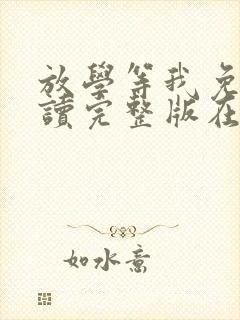 放學等我免
讀完整版在
如水意